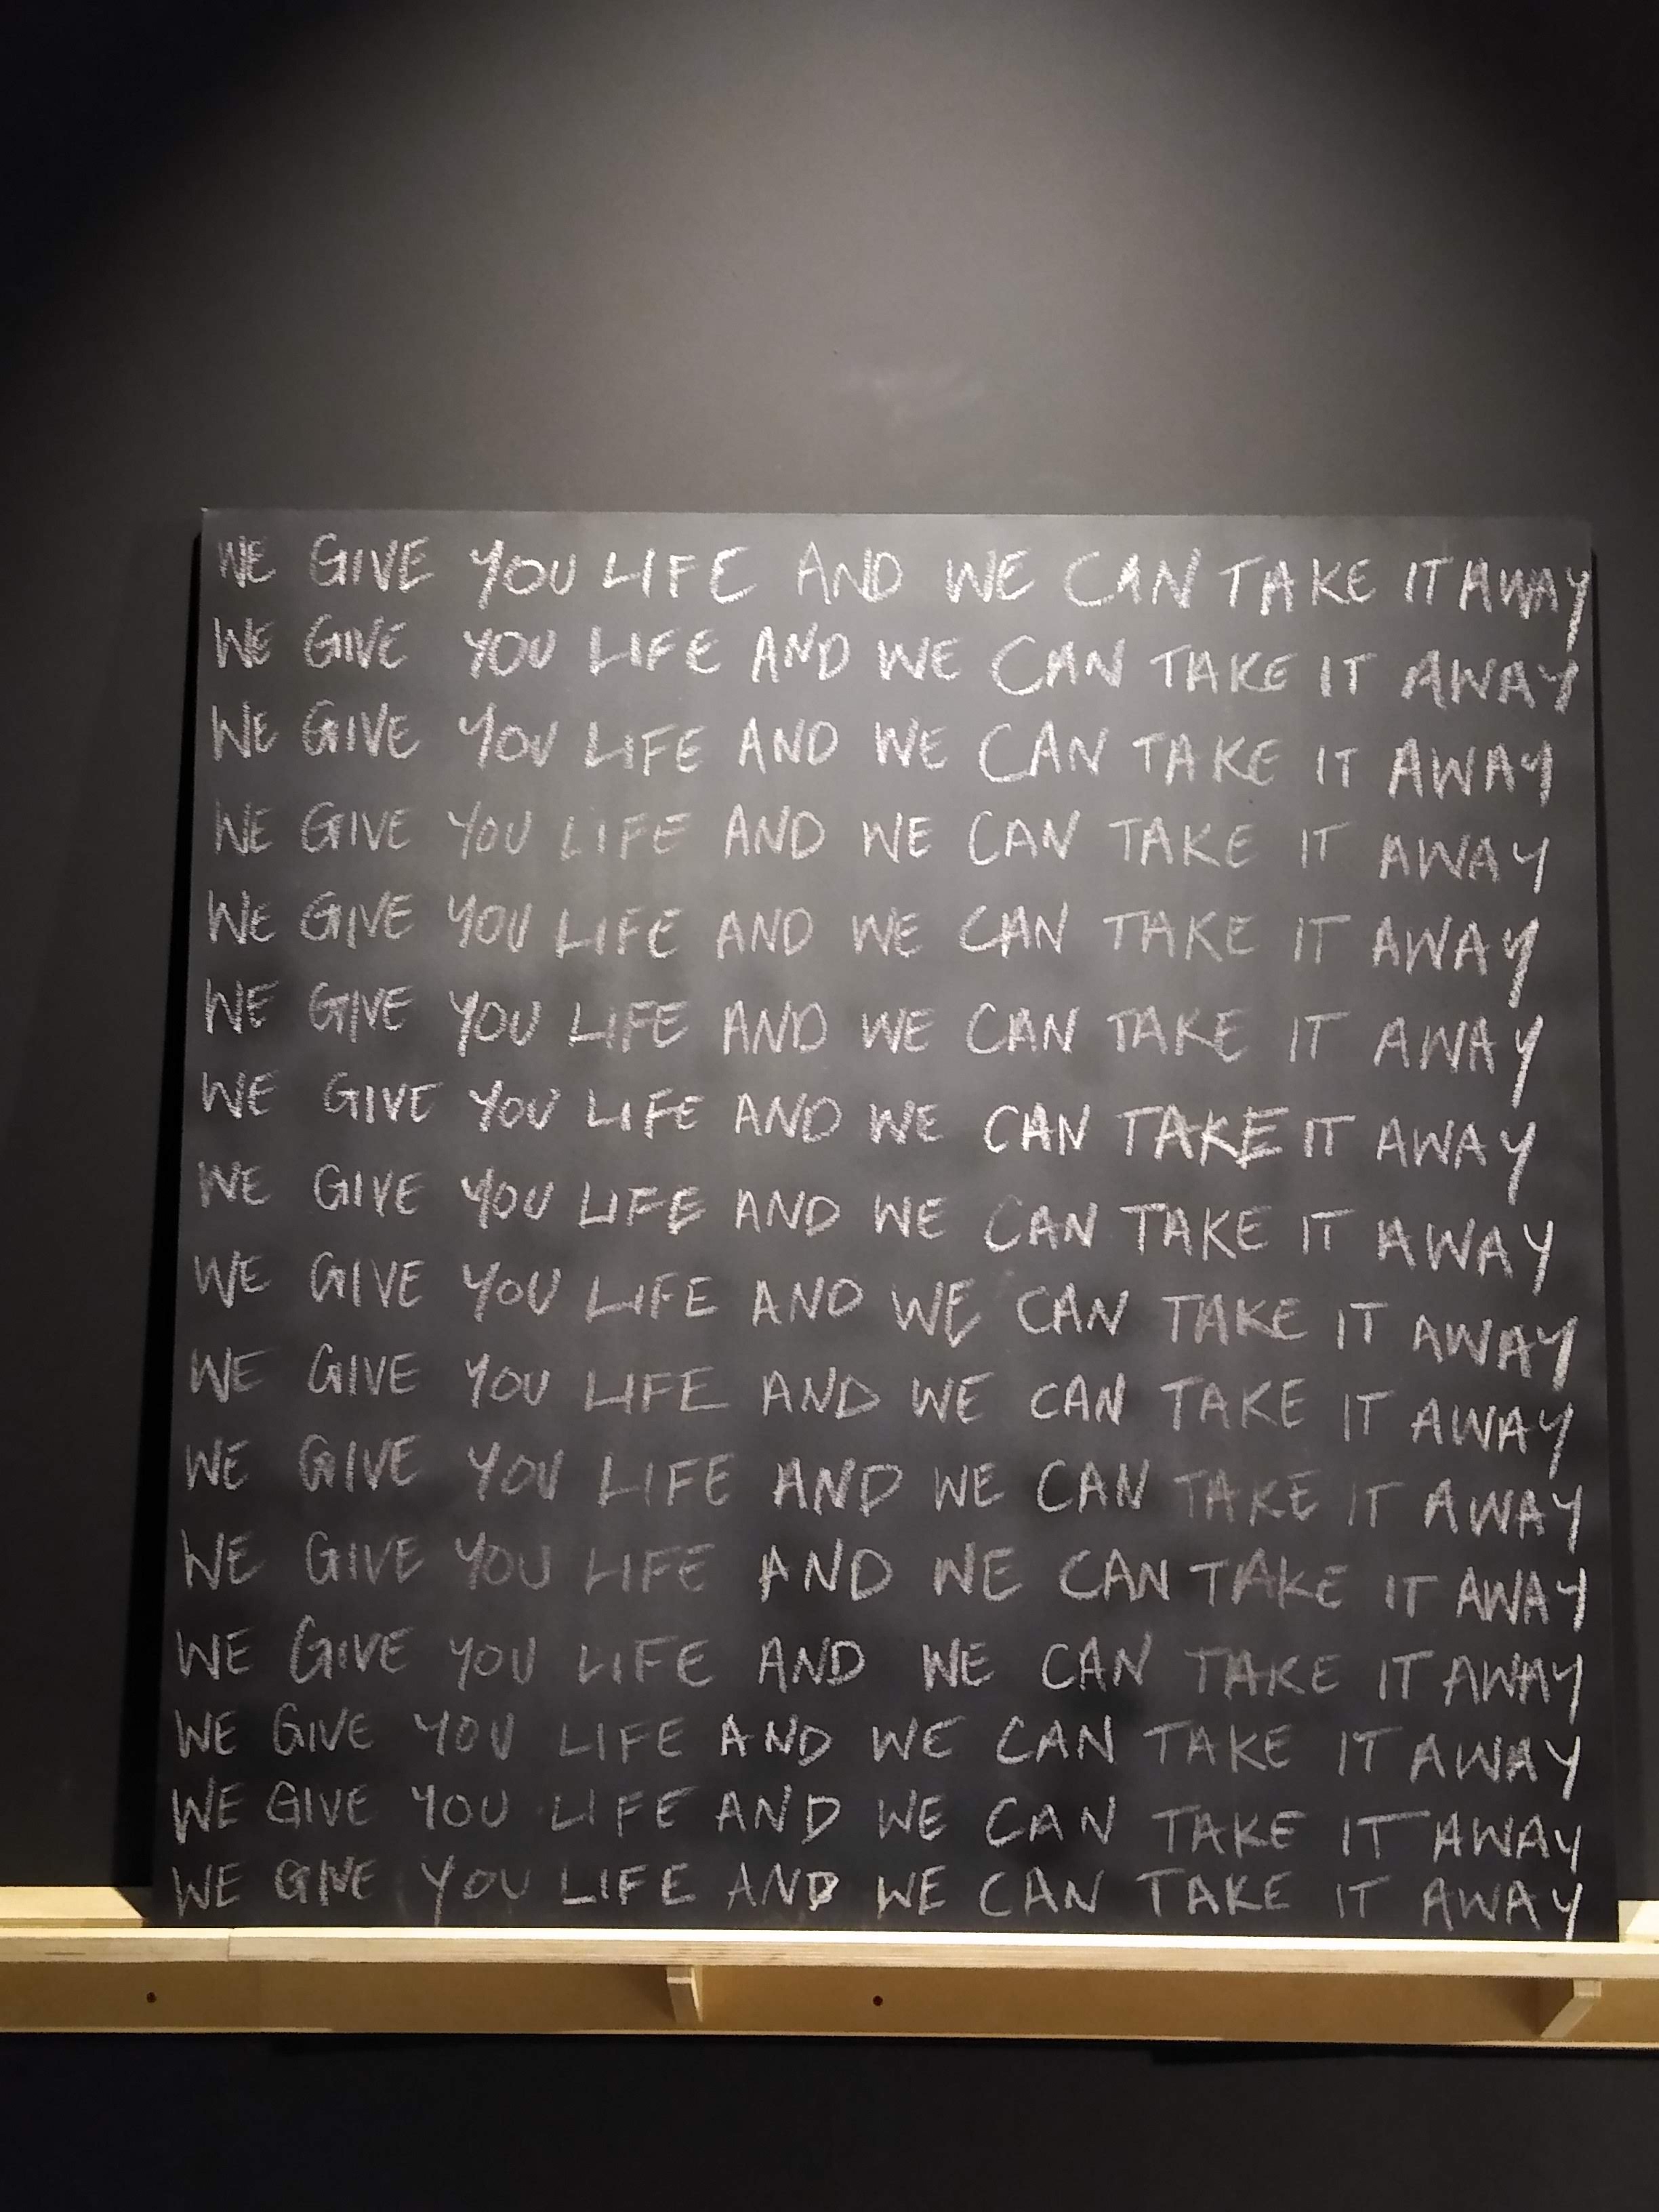 WE GIVE YOU LIFE AND WE CAN TAKE IT AWAY
WE GIVE YOU LIFE AND WE CAN TAKE IT AWAY
WE GIVE YOU LIFE AND WE CAN TAKE IT AWAY
WE GIVE YOU LIFE AND WE CAN TAKE IT AWAY
WE GIVE YOU LIFE AND WE CAN TAKE IT AWAY
WE GIVE YOU LIFE AND WE CAN TAKE IT AWAY
WE GIVE YOU LIFE AND WE CAN TAKE IT AWAY
WE GIVE YOU LIFE AND WE CAN TAKE IT AWAY
WE GIVE YOU LIFE AND WE CAN TAKE IT AWAY
WE GIVE YOU LIFE AND WE CAN TAKE IT AWAY
WE GIVE YOU LIFE AND WE CAN TAKE IT AWAY
WE GIVE YOU LIFE AND WE CAN TAKE IT AWAY
WE GIVE YOU LIFE AND WE CAN TAKE IT AWAY
WE GIVE YOU LIFE AND WE CAN TAKE IT AWAY
WE GIVE YOU LIFE AND WE CAN TAKE IT AWAY
WE GIVE YOU LIFE AND WE CAN TAKE IT AWAY